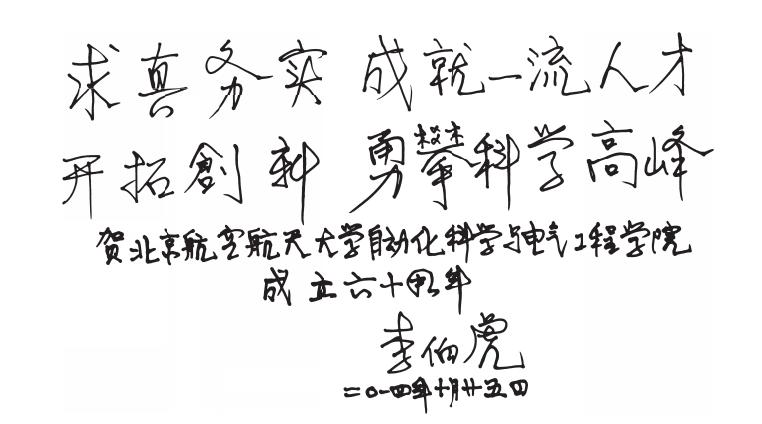 求真务实 成就一流人才
开拓創新 勇攀科学高峰
贺北京航空航天大学自动化科学与电气工程学院
成立六十周年
李伯虎
二〇一四年十月廿五日